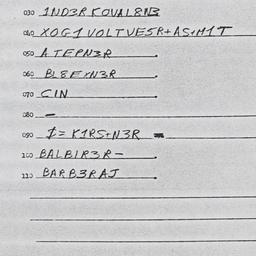 030 1ND3R KOVAL8N3
040 XOG1 VOLTVE5R+AS+M1T
050 ATEPN3R
060 BL8EXN3R
070 CIN
080 –
090 $= K1RS+N3R =
100 BALBIR3R–
110 BARB3RAJ